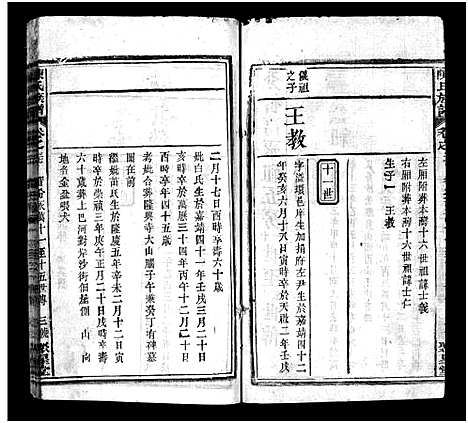 左廂附葬本灣十六世諱士義
右廂附葬本灣十六世諱士仁
生子一 王教
十一世
儀祖之子
王教
字溢環邑庠生加捐納生於嘉靖四十二
年癸亥六月十八日寅時卒於天啟二年壬戌
二月十七日酉時壽六十歲
妣白氏生於嘉靖四十一年壬戌三月二十日
亥時卒於萬歷三十四年丙午十二月二十日
酉時享年四十五歲
考妣合葬隆興寺大山廟子午兼癸丁有碑墓
繼妣苗氏生於隆慶五年辛未二月十二日寅
時卒於崇禎三年庚午正月二十日戌時享年
六十歲葬上巴河對岸沙街
山向
地名金盆張犬
陳氏族譜
三義
聚星堂